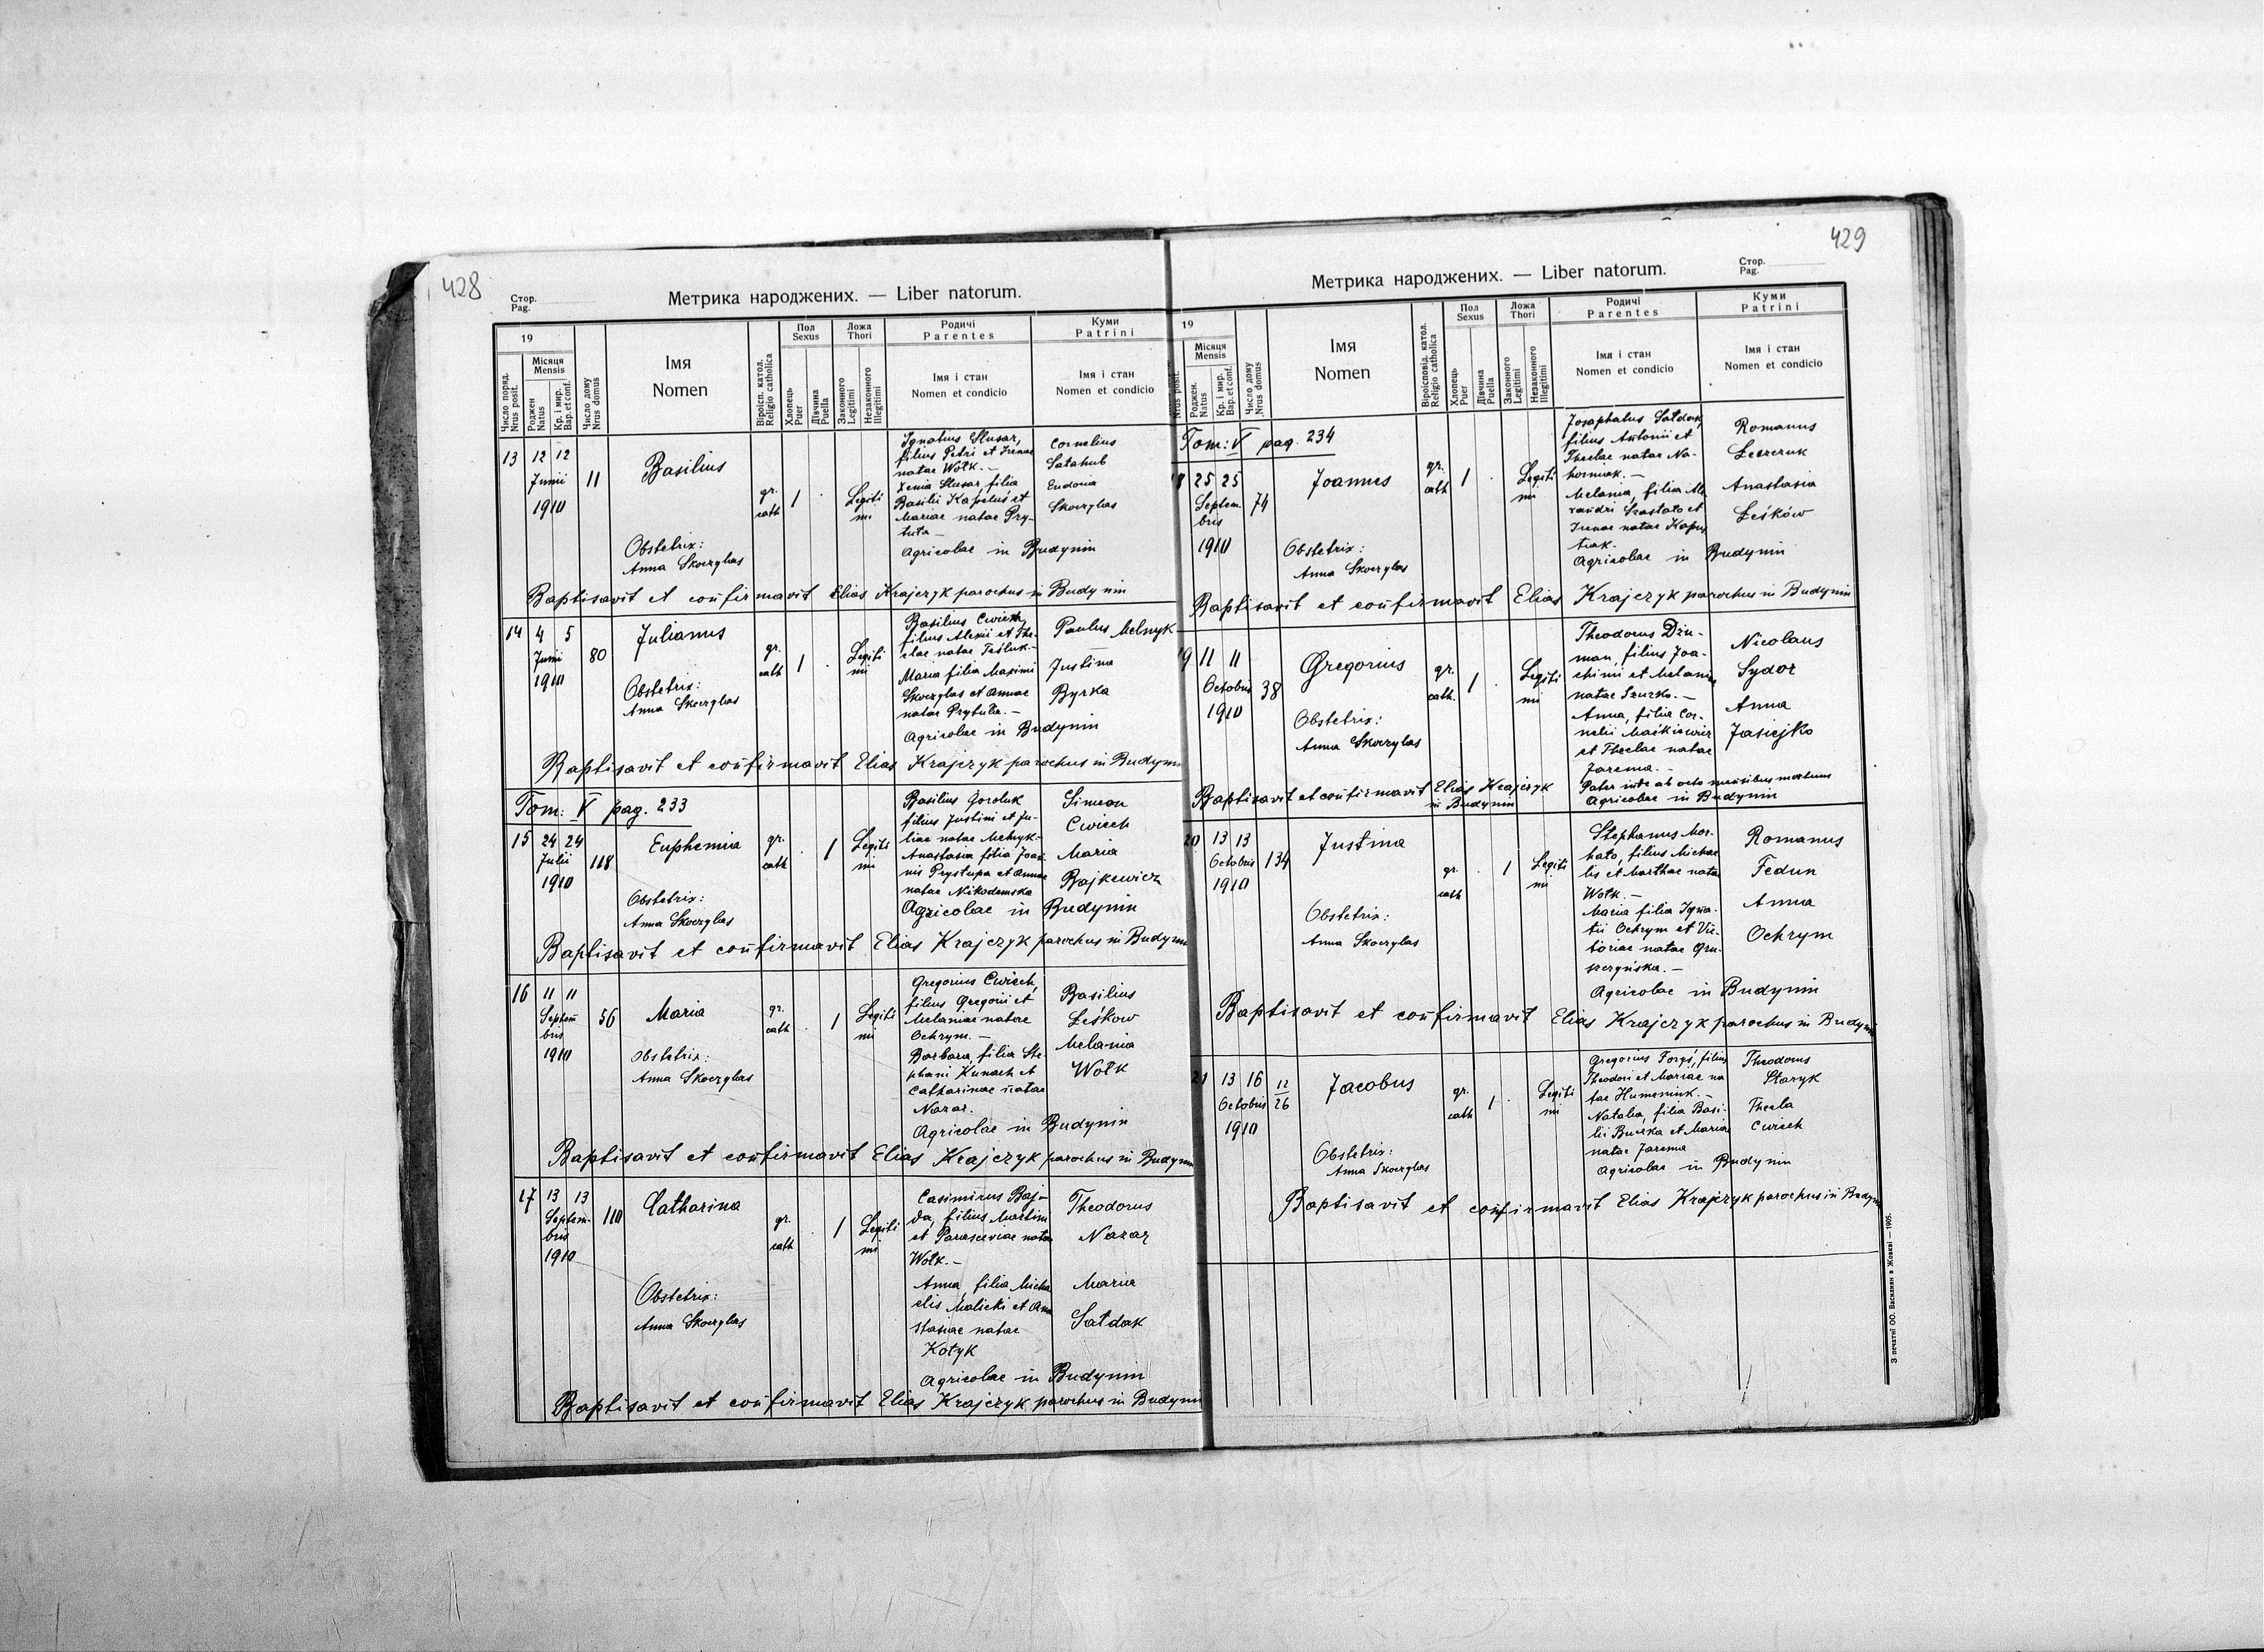 428
Стор.
Pag.
Метрика народжених. — Liber natorum.
19
Число поряд.
Nrus posit.
Місяця
Mensis
Роджен
Natus
Кр. і мир.
Bap. et conf.
Число дому
Nrus domus
Імя
Nomen
Віроісп. катол.
Religio catholica
Пол
Sexus
Хлопець
Puer
Дївчина
Puella
Ложа
Thori
Законного
Legitimi
Незаконного
Illegitimi
Родичі
Parentes
Імя і стан
Nomen et condicio
Куми
Patrini
Імя і стан
Nomen et condicio
13 12 12
Junii
1910
11
Basilius
Obstetrix:
Anna Skoczylas
gr.
cath
1
Legiti
mi
Ignatius Slusar,
filius Petri et Irenae
natae Wołk. —
Xenia Slusar, filia
Basilii Kapeluś et
Mariae natae Pry-
tuta —
Agricolae in Budynin
Cornelius
Satahub
Eudonia
Skoczylas
Baptisavit et confirmavit Elias Krajczyk parochus in Budynin
14 4 5
Junii
1910
80
Julianus
Obstetrix:
Anna Skoczylas
gr.
cath
1
Legiti
mi
Basilius Cwiech,
filius Alexii et The-
clae natae Teśluk. —
Maria filia Maximi
Skoczylas et Annae
natae Prytuła. —
Agricolae in Budynin
Paulus Melnyk
Justina
Byrka
Baptisavit et confirmavit Elias Krajczyk parochus in Budynin
Tom: V pag. 233
15 24 24
Julii
1910
118
Euphemia
Obstetrix:
Anna Skoczylas
gr.
cath
1
Legiti
mi
Basilius Goroluk
filius Justini et Ju-
liae natae Melnyk —
Anastasia filia Joan-
nis Prystupa et Annae
natae Nikodemska
Agricolae in Budynin
Simeon
Cwiech
Maria
Bajkewicz
Baptisavit et confirmavit Elias Krajczyk parochus in Budynin
16 11 11
Septem
bris
1910
56
Maria
Obstetrix:
Anna Skoczylas
gr.
cath
1
Legiti
mi
Gregorius Cwiech,
filius Gregorii et
Melaniae natae
Ochrym. —
Barbara, filia Ste-
phani Kunach et
Catharinae natae
Nazar.
Agricolae in Budynin
Basilius
Leśkow
Melania
Wołk
Baptisavit et confirmavit Elias Krajczyk parochus in Budynin
17 13 13
Septem-
bris
1910
110
Catharina
Obstetrix:
Anna Skoczylas
gr.
cath
1
Legiti
mi
Casimirus Baj-
da, filius Martini
et Parasceviae natae
Wołk. —
Anna, filia Micha
elis Malicki et Ana
stasiae natae
Kotyk
Agricolae in Budynin
Theodorus
Nazar
Maria
Sałdak
Baptisavit et confirmavit Elias Krajczyk parochus in Budynin
429
Стор.
Pag.
Метрика народжених. — Liber natorum.
19
Nrus posit.
Місяця
Mensis
Роджен.
Natus
Кр. і мир.
Bap. et conf.
Число дому
Nrus domus
Імя
Nomen
Віроісповід. катол.
Religio catholica
Пол
Sexus
Хлопець
Puer
Дївчина
Puella
Ложа
Thori
Законного
Legitimi
Незаконного
Illegitimi
Родичі
Parentes
Імя і стан
Nomen et condicio
Куми
Patrini
Імя і стан
Nomen et condicio
Tom: V pag. 234
18 25 25
Septem
bris
1910
74
Joannes
Obstetrix:
Anna Skoczylas
gr.
cath
1
Legiti
mi
Josaphatus Sałdak,
filius Antonii et
Theclae natae Na-
horniak. —
Melania, filia Ale
xandri Szastało et
Irenae natae Kapus
tiak.
Agricolae in Budynin
Romanus
Leszczuk
Anastasia
Leśków
Baptisavit et confirmavit Elias Krajczyk parochus in Budynin
19 11 11
Octobris
1910
38
Gregorius
Obstetrix:
Anna Skoczylas
gr.
cath.
1
Legiti
mi
Theodorus Dziu-
man, filius Joa-
chimi et Melaniae
natae Szuzko. —
Anna, filia Cor-
nelii Maćkiewicz
et Theclae natae
Jarema. —
Pater inde ab octo mensibus mortuus
Agricolae in Budynin
Nicolaus
Sydor
Anna
Jasiejko
Baptisavit et confirmavit Elias Krajczyk
in Budynin
20 13 13
Octobris
1910
134
Justina
Obstetrix:
Anna Skoczylas
gr.
cath
1
Legiti
mi
Stephanus Mor-
hato, filius Michae
lis et Marthae natae
Wołk. —
Maria filia Igna-
tii Ochrym et Vic-
toriae natae Gru-
szczyńska. —
Agricolae in Budynin
Romanus
Fedun
Anna
Ochrym
Baptisavit et confirmavit Elias Krajczyk parochus in Budynin
21 13 16
Octobris
1910
12
26
Jacobus
Obstetrix:
Anna Skoczylas
gr.
cath
1
Legiti
mi
Gregorius Forgś, filius
Theodori et Mariae na
tae Humeniuk. —
Natalia, filia Basi-
lii Burka et Mariae
natae Jarema
Agricolae in Budynin
Theodorus
Staryk
Thecla
Cwiech
Baptisavit et confirmavit Elias Krajczyk parochus in Budynin
З печатні ОО. Василиян в Жовкві — 1905.